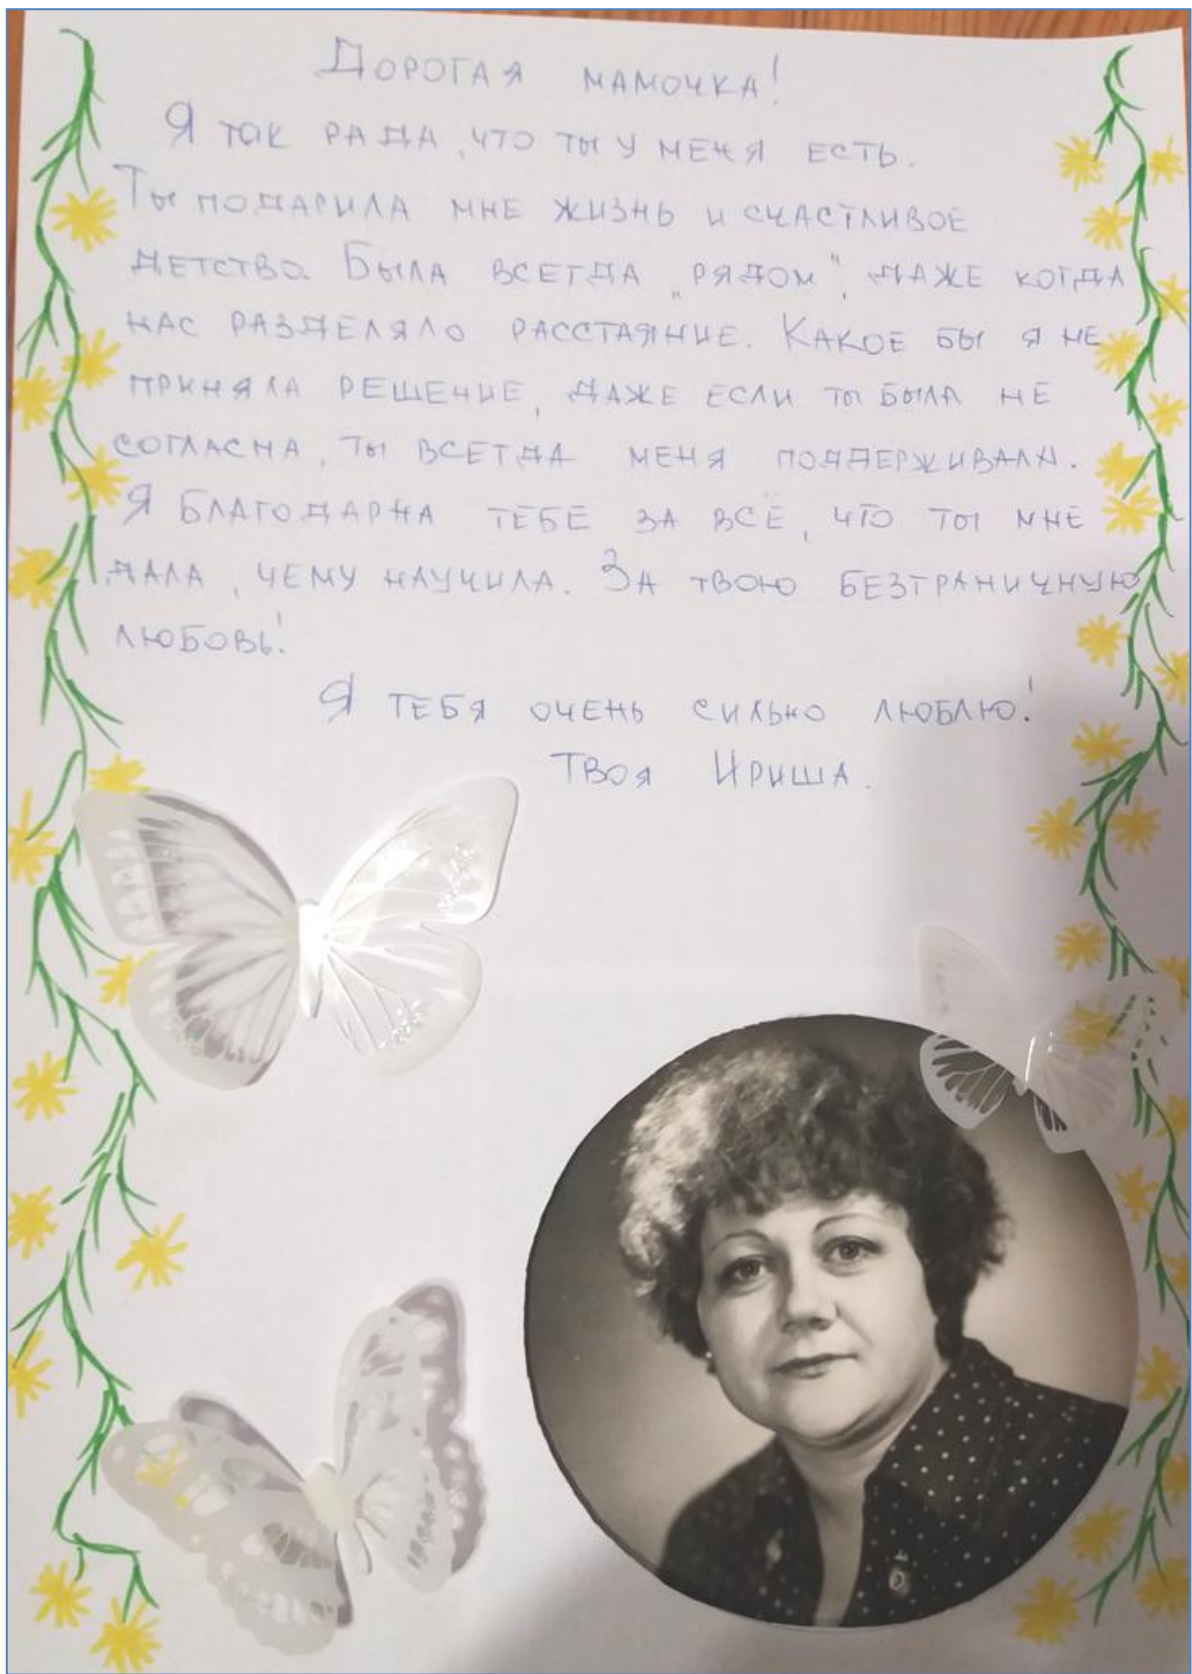 Дорогая мамочка!
Я так рада, что ты у меня есть.
Ты подарила мне жизнь и счастливое
детство. Была всегда „рядом", даже когда
нас разделяло расстаяние. Какое бы я не
приняла решение, даже если ты была не
согласна, ты всегда меня поддерживала.
Я благодарна тебе за всё, что ты мне
дала, чему научила. За твою безграничную
любовь!
Я тебя очень сильно люблю!
Твоя Ириша.